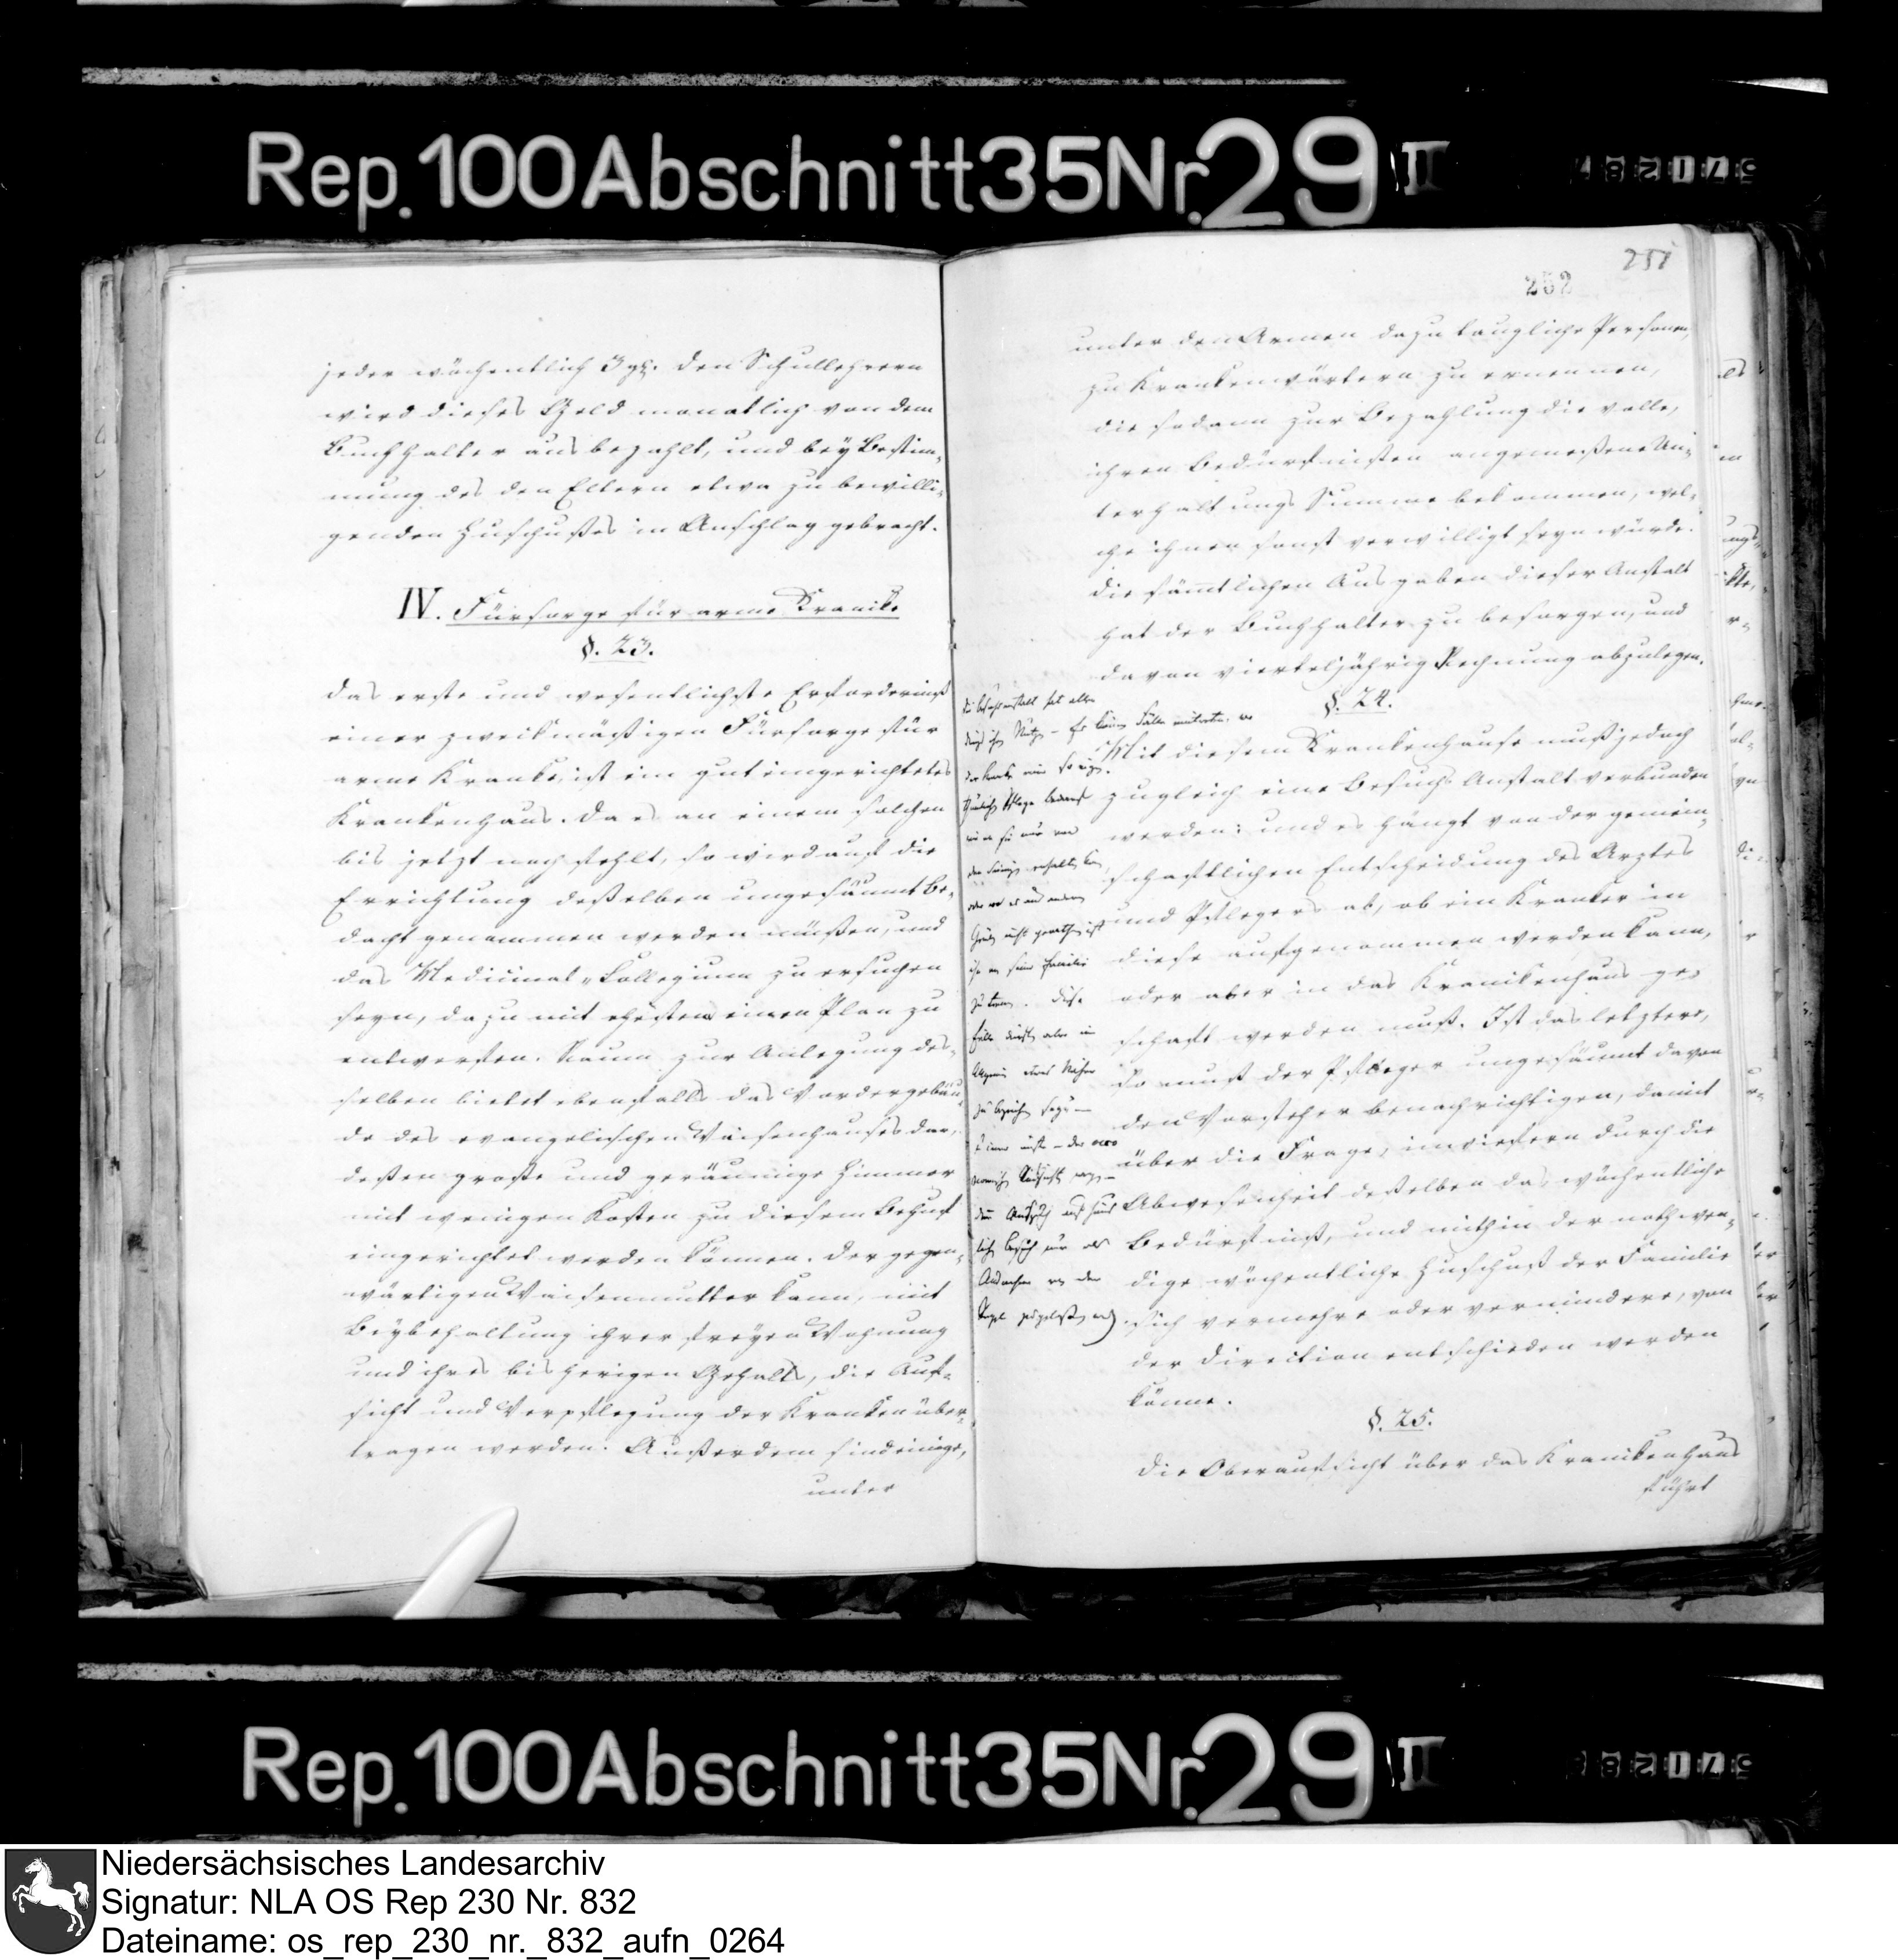 Rep. 100 Abschnitt 35 Nr. 29 II
571287
jeder wöchentlich 3 gl. Den Schullehrern
wird dieses Geld monatlich von dem
Buchhalter ausbezahlt, und bey Bestim-
mung des den Eltern etwa zu bewilli-
genden Zuschußes in Anschlag gebracht.
IV. Fürsorge für arme Kranke
§. 23.
Das erste und wesentlichste Erforderniß
einer zweckmäßigen Fürsorge für
arme Kranke, ist ein gut eingerichtetes
Krankenhaus. Da es an einem solchen
bis jetzt noch fehlt, so wird auf die
Errichtung deßelben ungesäumt Be-
dacht genommen werden müßen, und
das Medicinal-Collegium zu ersuchen
seyn, dazu mit ehesten einen Plan zu
entwerfen. Raum zur Anlegung des-
selben bietet ebenfalls das Vordergebäu-
de des evangelischen Waisenhauses dar,
deßen große und geräumige Zimmer
mit wenigen Kosten zu diesem Behuf
eingerichtet werden können. Der gegen-
wärtigen Waisenmutter kann, mit
Beybehaltung ihrer freyen Wohnung
und ihres bisherigen Gehalts, die Auf-
sicht und Verpflegung der Kranken über-
tragen werden. Außerdem sind einige,
unter
251
252
unter den Armen dazu taugliche Personen,
zu Krankenwärtern zu ernennen,
die sodann zur Bezahlung die volle,
ihren Bedürfnißen angemeßene Un-
terhaltungs Summe bekommen, wel-
che ihnen sonst verwilligt seyn würde.
Die sämtlichen Ausgaben dieser Anstalt
hat der Buchhalter zu besorgen, und
davon vierteljährig Rechnung abzulegen.
§. 24.
Mit diesem Krankenhause muß jedoch
zugleich eine Besuchs Anstalt verbunden
werden: und es hängt von der gemein-
schaftlichen Entscheidung des Arztes
und Pflegers ab, ob ein Kranker in
diese aufgenommen werden kann,
oder aber in das Krankenhaus ge-
schafft werden muß. Ist das letztere,
so muß der Pfleger ungesäumt davon
den Vorsteher benachrichtigen, damit
über die Frage, inwiefern durch die
Abwesenheit deßelben das wöchentliche
Bedürfniß, und mithin der nothwen-
dige wöchentliche Zuschuß der Familie
sich vermehre oder vermindere, von
der Direction entschieden werden
könne.
§. 25.
Die Oberaufsicht über das Krankenhaus
führt
Die Besuchanstalt hat aller
dings ihren Nutzen – Es können Fälle eintreten, wo
der Kranke eine so eigen
thümliche Pflege bedarf
wie er sie nur von
den Seinigen erhalten kann,
oder wo es aus andern
nicht
seiner Familie
zu trennen. Diese
Fälle
zu seyn –
Rep. 100 Abschnitt 35 Nr. 29 II
571287
Niedersächsisches Landesarchiv
Signatur: NLA OS Rep 230 Nr. 832
Dateiname: os_rep_230_nr._832_aufn_0264